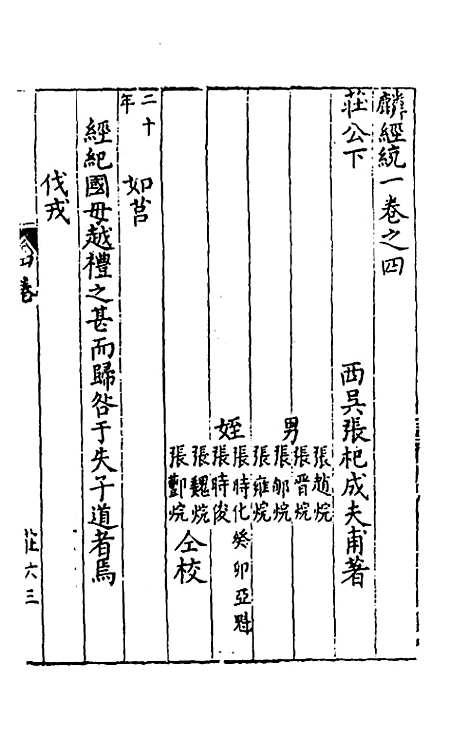 麟經統一卷之四
莊公下
西吳張杞成夫甫著
男
張趙烷
張晉烷
張郇烷
張雍烷
姪
張時化癸卯亞魁
張時俊
張魏烷
張酆烷
仝校
二十年
如莒
經紀國毋越禮之甚而歸咎于失子道者焉
伐戎
四卷
莊六三